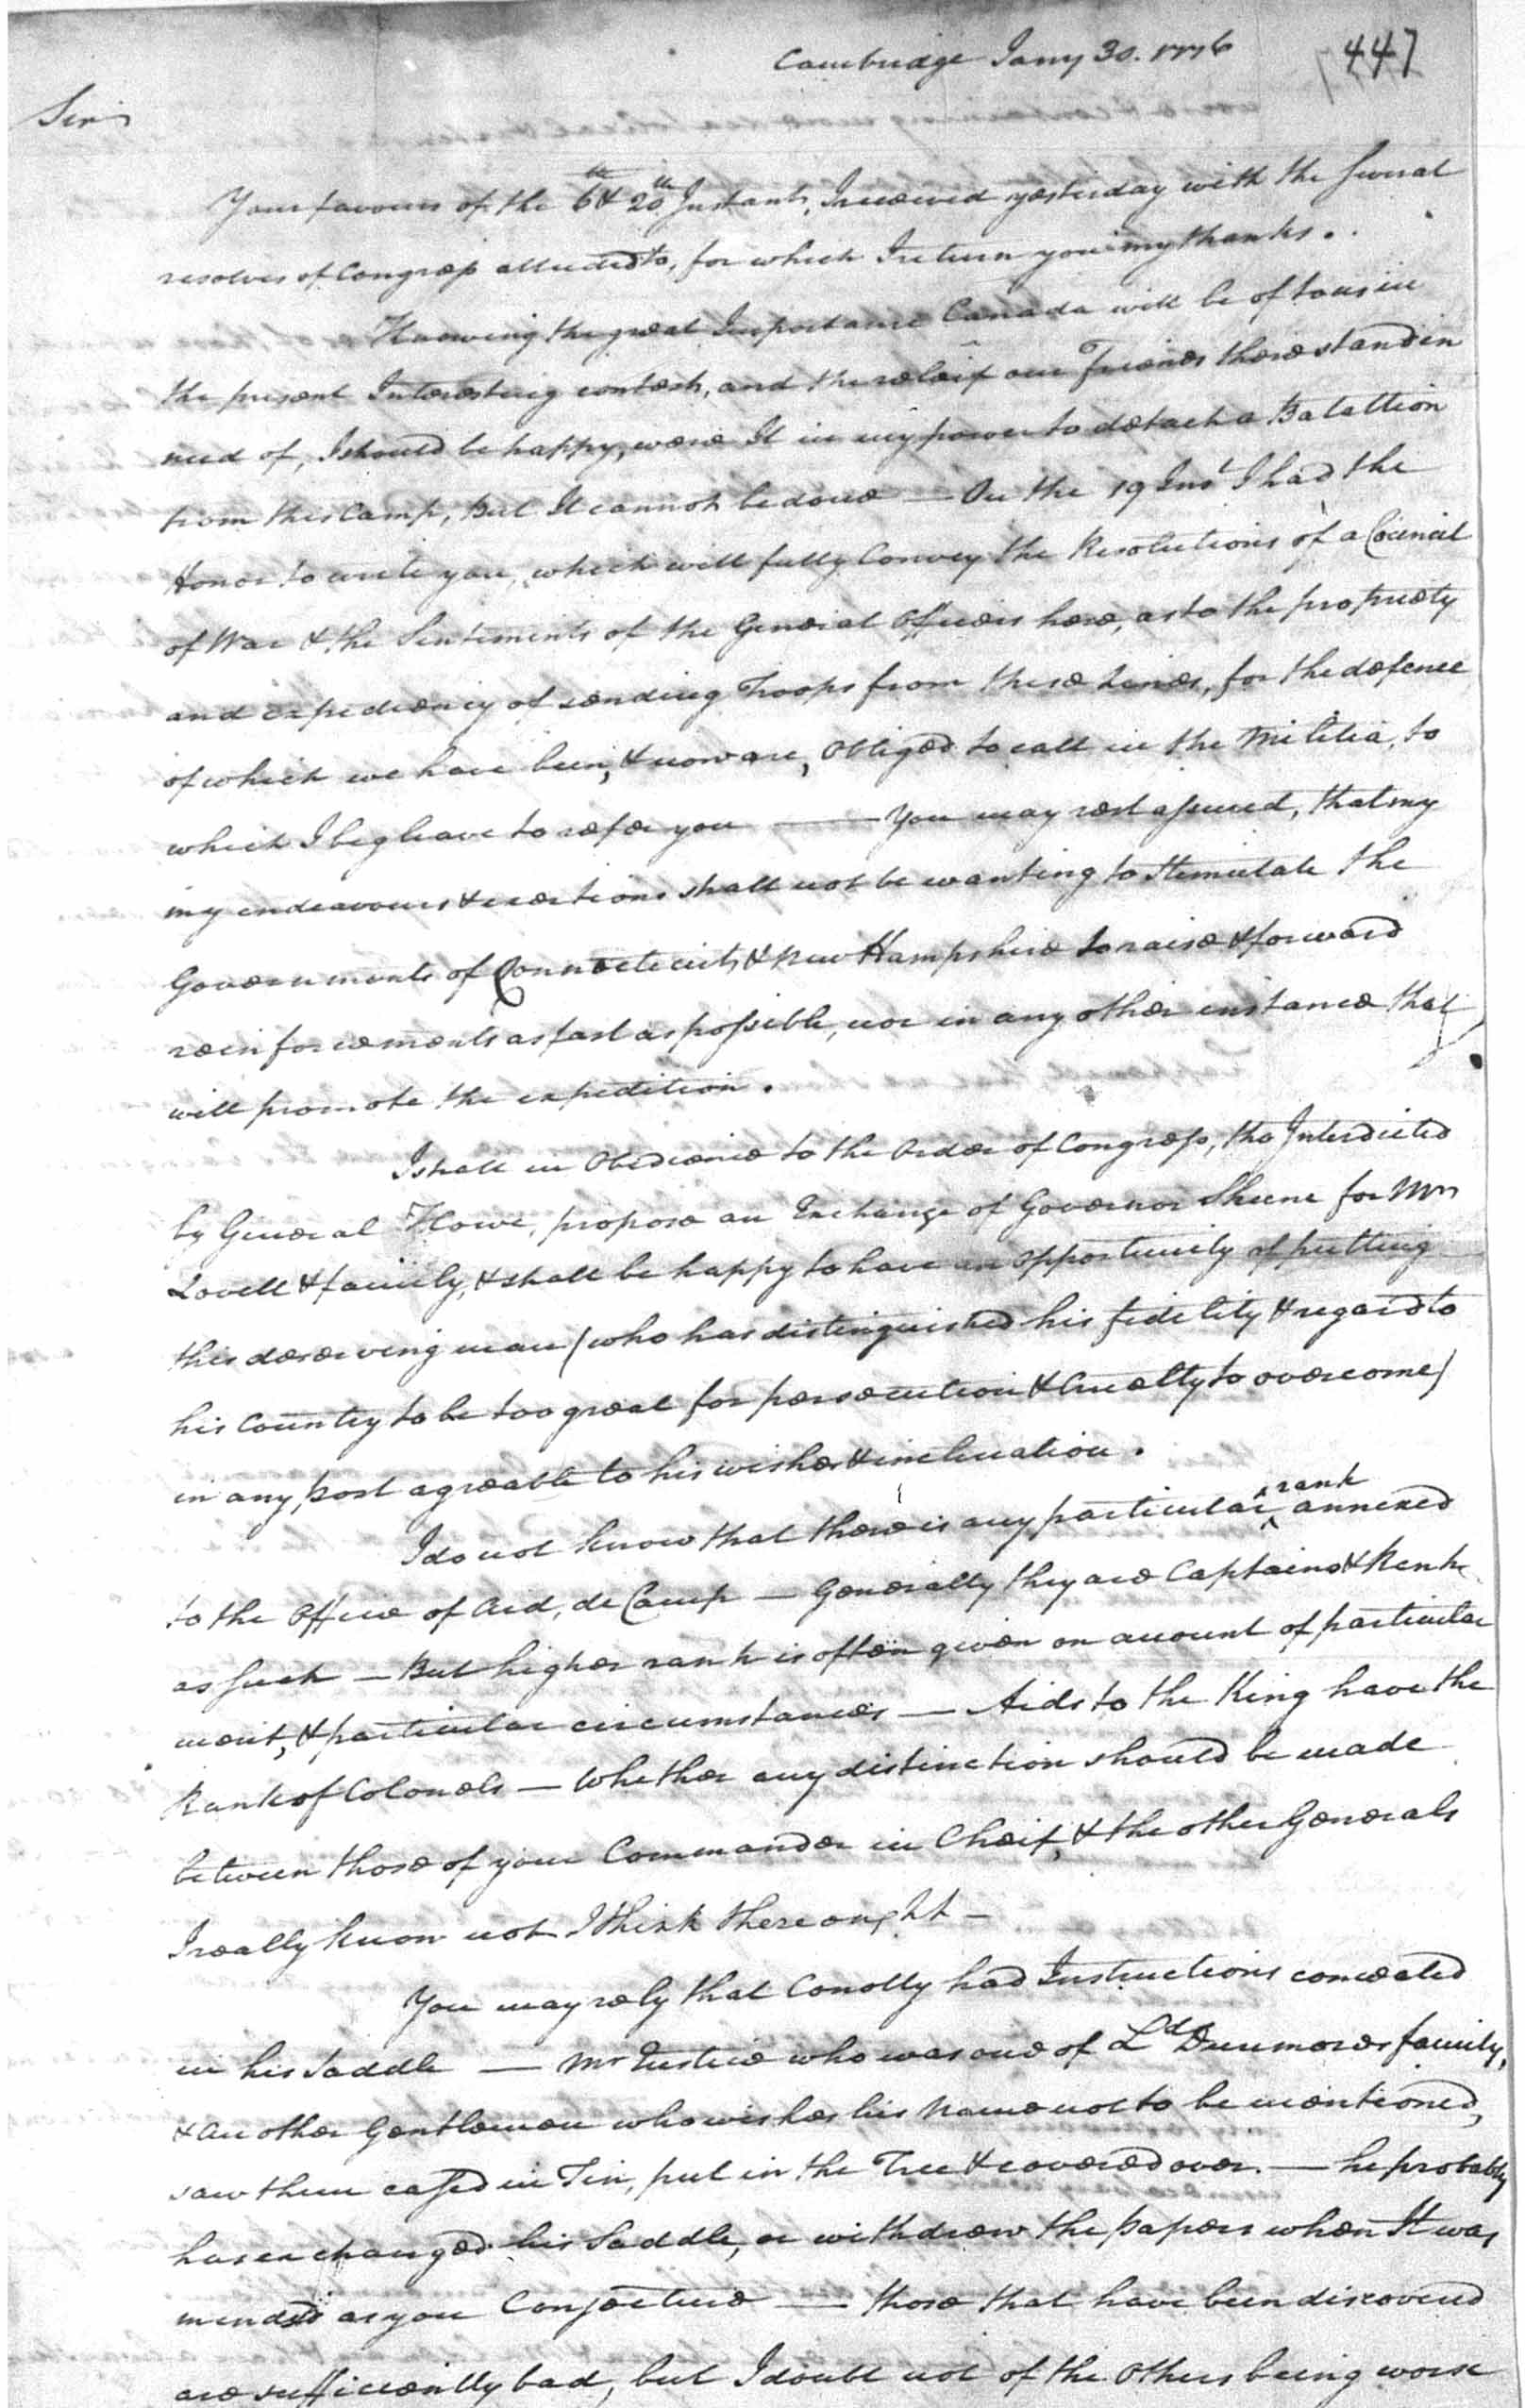 Cambridge Jany 30. 1776
447
Sir
Your favours of the 6th & 20th Instants, I received yesterday with the several
resolves of Congress alluded to, for which I return you my thanks.
Knowing the great Importance Canada will be of to us in
the present Interesting contest, and the releif our Friends there stand in
need of, I should be happy, were It in my power to detach a Batallion
from this Camp, But It cannot be done — On the 19 Inst I had the
Honor to write you, which will fully Convey the Resolutions of a Council
of War & the Sentiments of the General Officers here, as to the propriety
and expediency of sending Troops from these Lines, for the defence
of which we have been, & now are, Obliged to call in the Militia, to
which I beg leave to refer you — You may rest assured, that my
my endeavours & exertions shall not be wanting to stimulate the
Governments of Connecticut & New Hampshire to raise & forward
reinforcements as fast as possible, nor in any other instance that
will promote the expedition.
I shall in Obedience to the Order of Congress, tho Interdicted
by General Howe, propose an Exchange of Governor Skene for Mr
Lovell & family, & shall be happy to have an opportunity of putting
this deserving man (who has distinguished his fidelity & regard to
his Country to be too great for persecution & Cruelty to overcome)
in any post agreable to his wishes & inclination.
I do not know that there is any particular rank annexed
to the Office of Aid, de Camp — Generally they are Captains & Rank
as such — But higher rank is often given on account of particular
merit, & particular circumstances — Aids to the King have the
Rank of Colonels — Whether any distinction should be made
between those of your Commander in Cheif, & the other Generals
I really know not I think there ought —
You may rely that Conolly had Instructions concealed
in his Saddle — Mr Eustice who was one of Ld Dunmores family,
& another Gentleman who wishes his Name not to be mentioned,
saw them cased in Tin, put in the Tree & covered over. — he probably
has exchanged his Saddle, or withdrew the papers when It was
mended as you Conjecture — those that have been discovered
are sufficiently bad, but I doubt not of the Others being worse